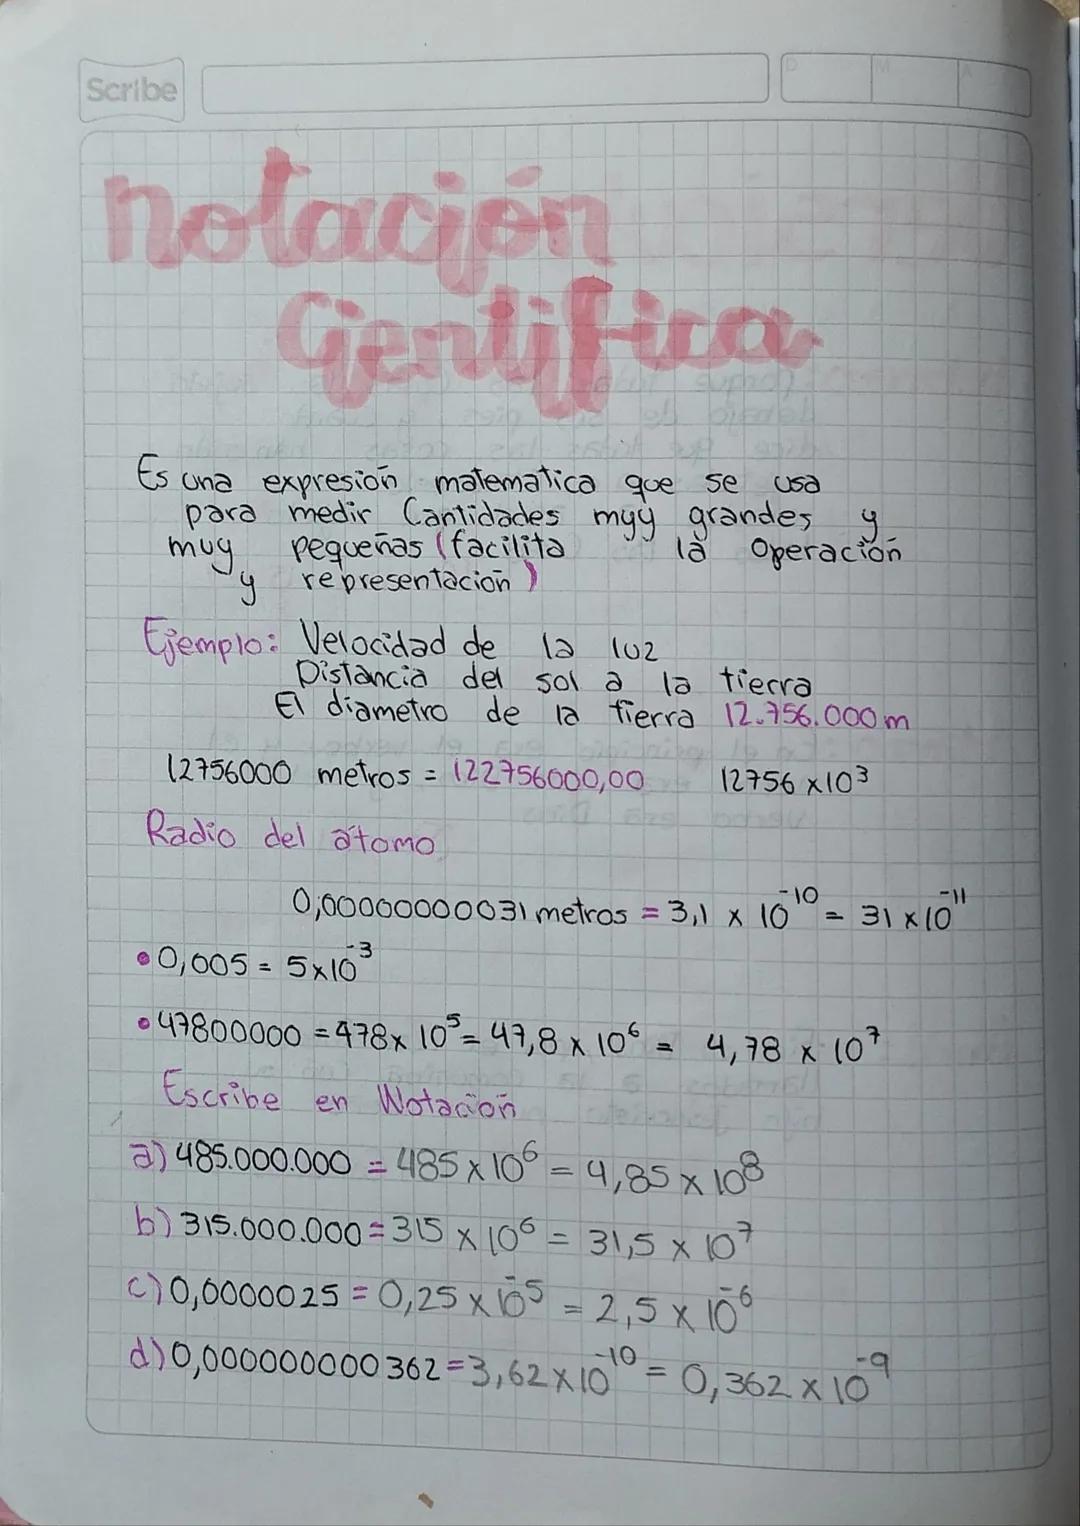 Scribe
D M A
Notación
Científica
Es una expresión matematica que se usa
para medir Cantidades muy grandes y
muy pequeñas (facilita la Operación
y representación)
Ejemplo: Velocidad de la luz
Distancia del sol a la tierra
El diametro de la tierra 12.756.000m
12756000 metros = 122756000,00 12756 x10³
Radio del átomo
0,00000000031 metros = 3,1 x 10⁻¹⁰ = 31 x10⁻¹¹
• 0,005 = 5x10⁻³
• 47800000 = 478x 10⁵ = 47,8 x 10⁶ = 4,78 x 10⁷
Escribe en Notación
a) 485.000.000 = 485 x 10⁶ = 4,85 x 10⁸
b) 315.000.000 = 315 x 10⁶ = 31,5 x 10⁷
c) 0,0000025 = 0,25 x 10⁻⁵ = 2,5 x 10⁻⁶
d) 0,000000000362 = 3,62 x 10⁻¹⁰ = 0,362 x 10⁻⁹